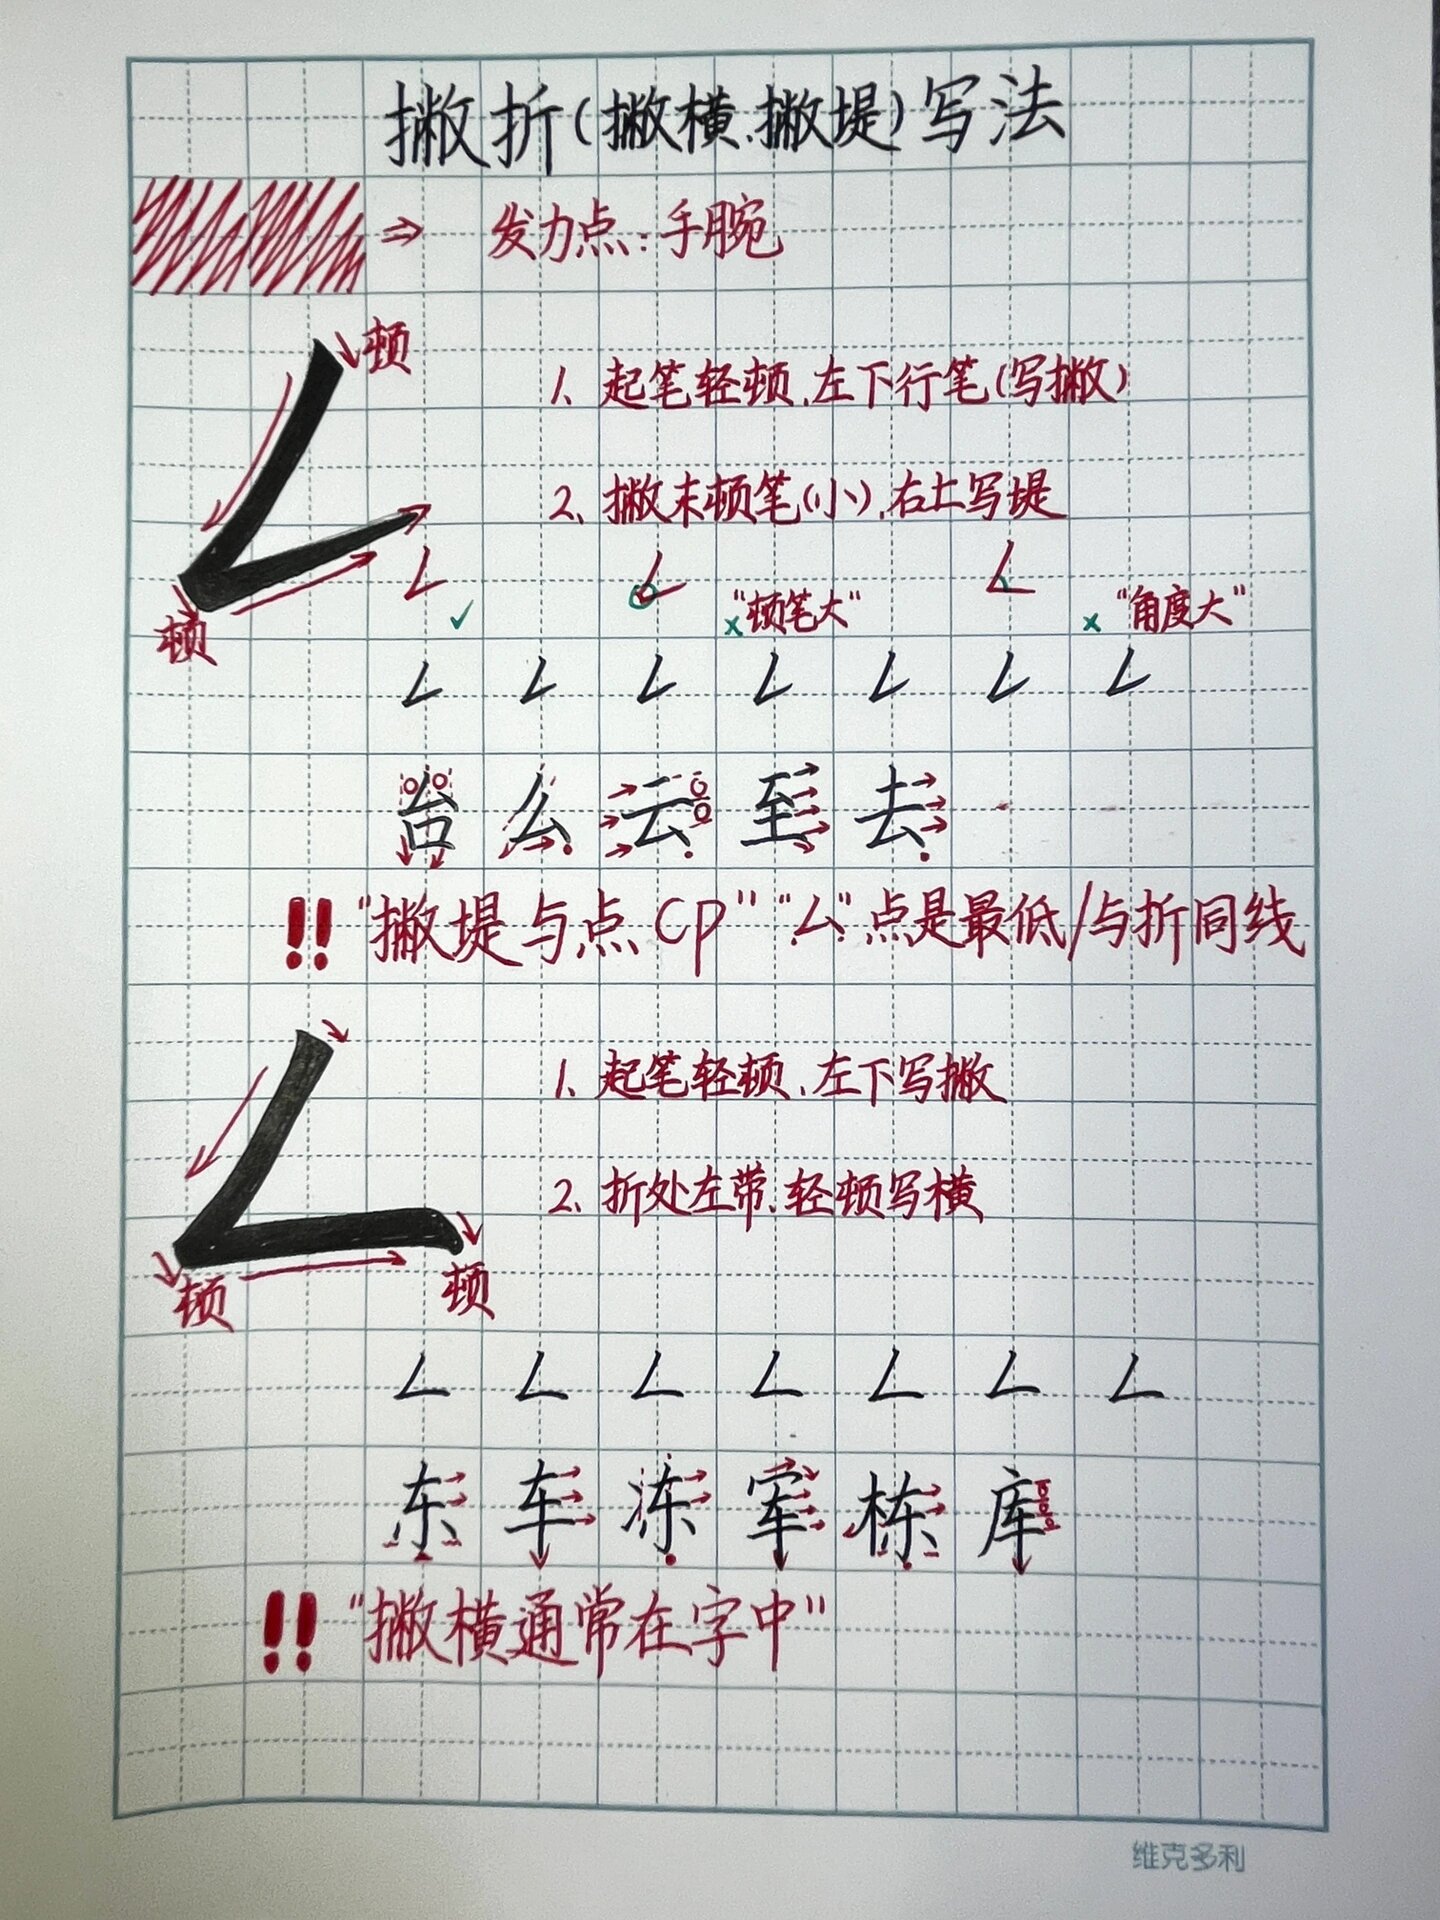 撇折(撇横、撇堤)写法
⇒ 发力点:手腕
顿
1、起笔轻顿、左下行笔(写撇)
2、撇末顿笔(小)、右上写堤
顿
✓ x "顿笔大" x "角度大"
台 么 云 至 去
!! "撇堤与点CP" "厶"点是最低/与折同线
1、起笔轻顿、左下写撇
2、折处左带、轻顿写横
顿 顿
东 车 冻 军 栋 库
!! "撇横通常在字中"
维克多利